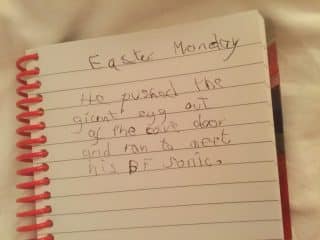 Easter Monday
He pushed the
giant egg out
of the cave door
and ran to meet
his BF sonic.